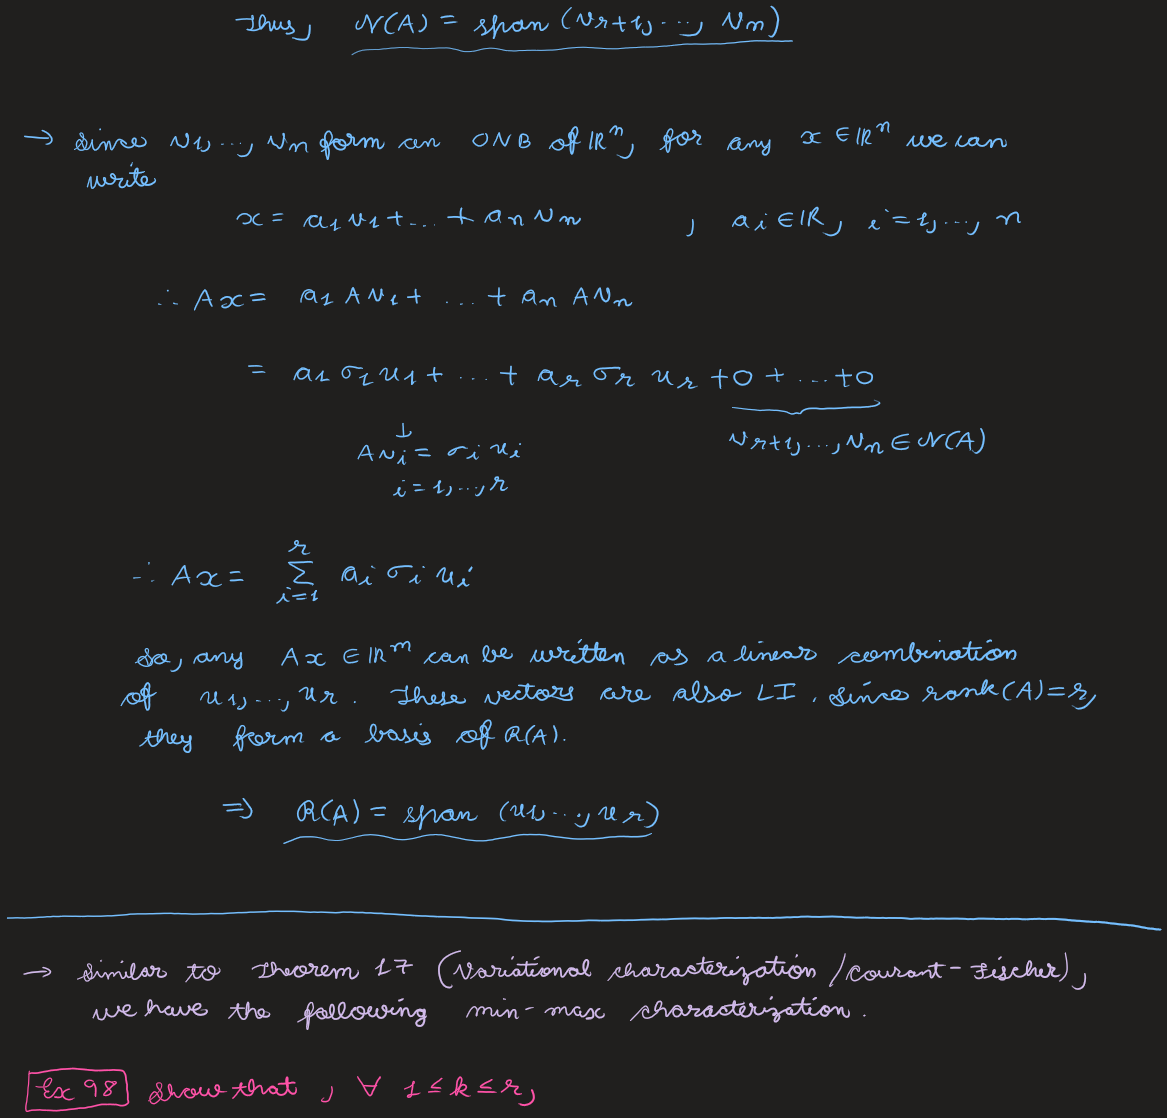 Thus, N(A) = span (v_{r+1}, ..., v_n)
→ Since v_1, ..., v_n form an ONB of ℝ^n, for any x ∈ ℝ^n we can
write
x = a_1 v_1 + ... + a_n v_n , a_i ∈ ℝ, i = 1, ..., n
∴ Ax = a_1 A v_1 + ... + a_n A v_n
= a_1 σ_1 u_1 + ... + a_r σ_r u_r + 0 + ... + 0
↓
A v_i = σ_i u_i v_{r+1}, ..., v_n ∈ N(A)
i = 1, ..., r
∴ Ax = ∑_{i=1}^{r} a_i σ_i u_i
So, any Ax ∈ ℝ^m can be written as a linear combination
of u_1, ..., u_r. These vectors are also LI. Since rank(A) = r,
they form a basis of R(A).
⇒ R(A) = span (u_1, ..., u_r)
→ Similar to Theorem 17 (Variational characterization / Courant-Fischer),
we have the following min-max characterization.
Ex 98 Show that, ∀ 1 ≤ k ≤ r,